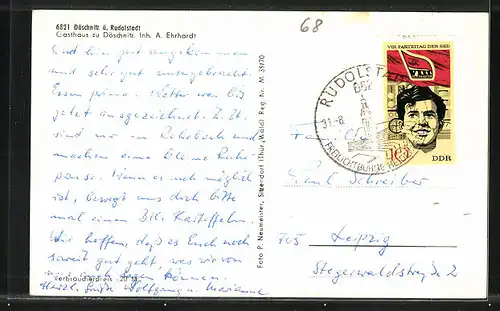 6821 Döschnitz ü. Rudolstadt
Gasthaus zu Döschnitz. Inh. A. Ehrhardt
68
Sind hier gut angekommen
und sehr gut untergebracht.
Essen prima. Wetter war bis
jetzt ausgezeichnet. Z. Zt.
sind wir in und
machen eine kleine Ruhe-
pause. Wenn es noch möglich
ist, besorgt uns doch bitte
mal einen Kartoffeln.
Wir hoffen, daß es Euch noch
soweit gut geht, was wir von
uns auch sagen können.
Herzl. Grüße Wolfgang u. Marianne
Verbraucherpreis
Foto P. Neumeister, Sitzendorf (Thür. Wald) Reg Nr. M 35/70
VIII. PARTEITAG DER SED
DDR
RUDOLSTADT
682
31.-8.
Fam.
Paul Schreiber
705 Leipzig
Stegerwaldstraße 2